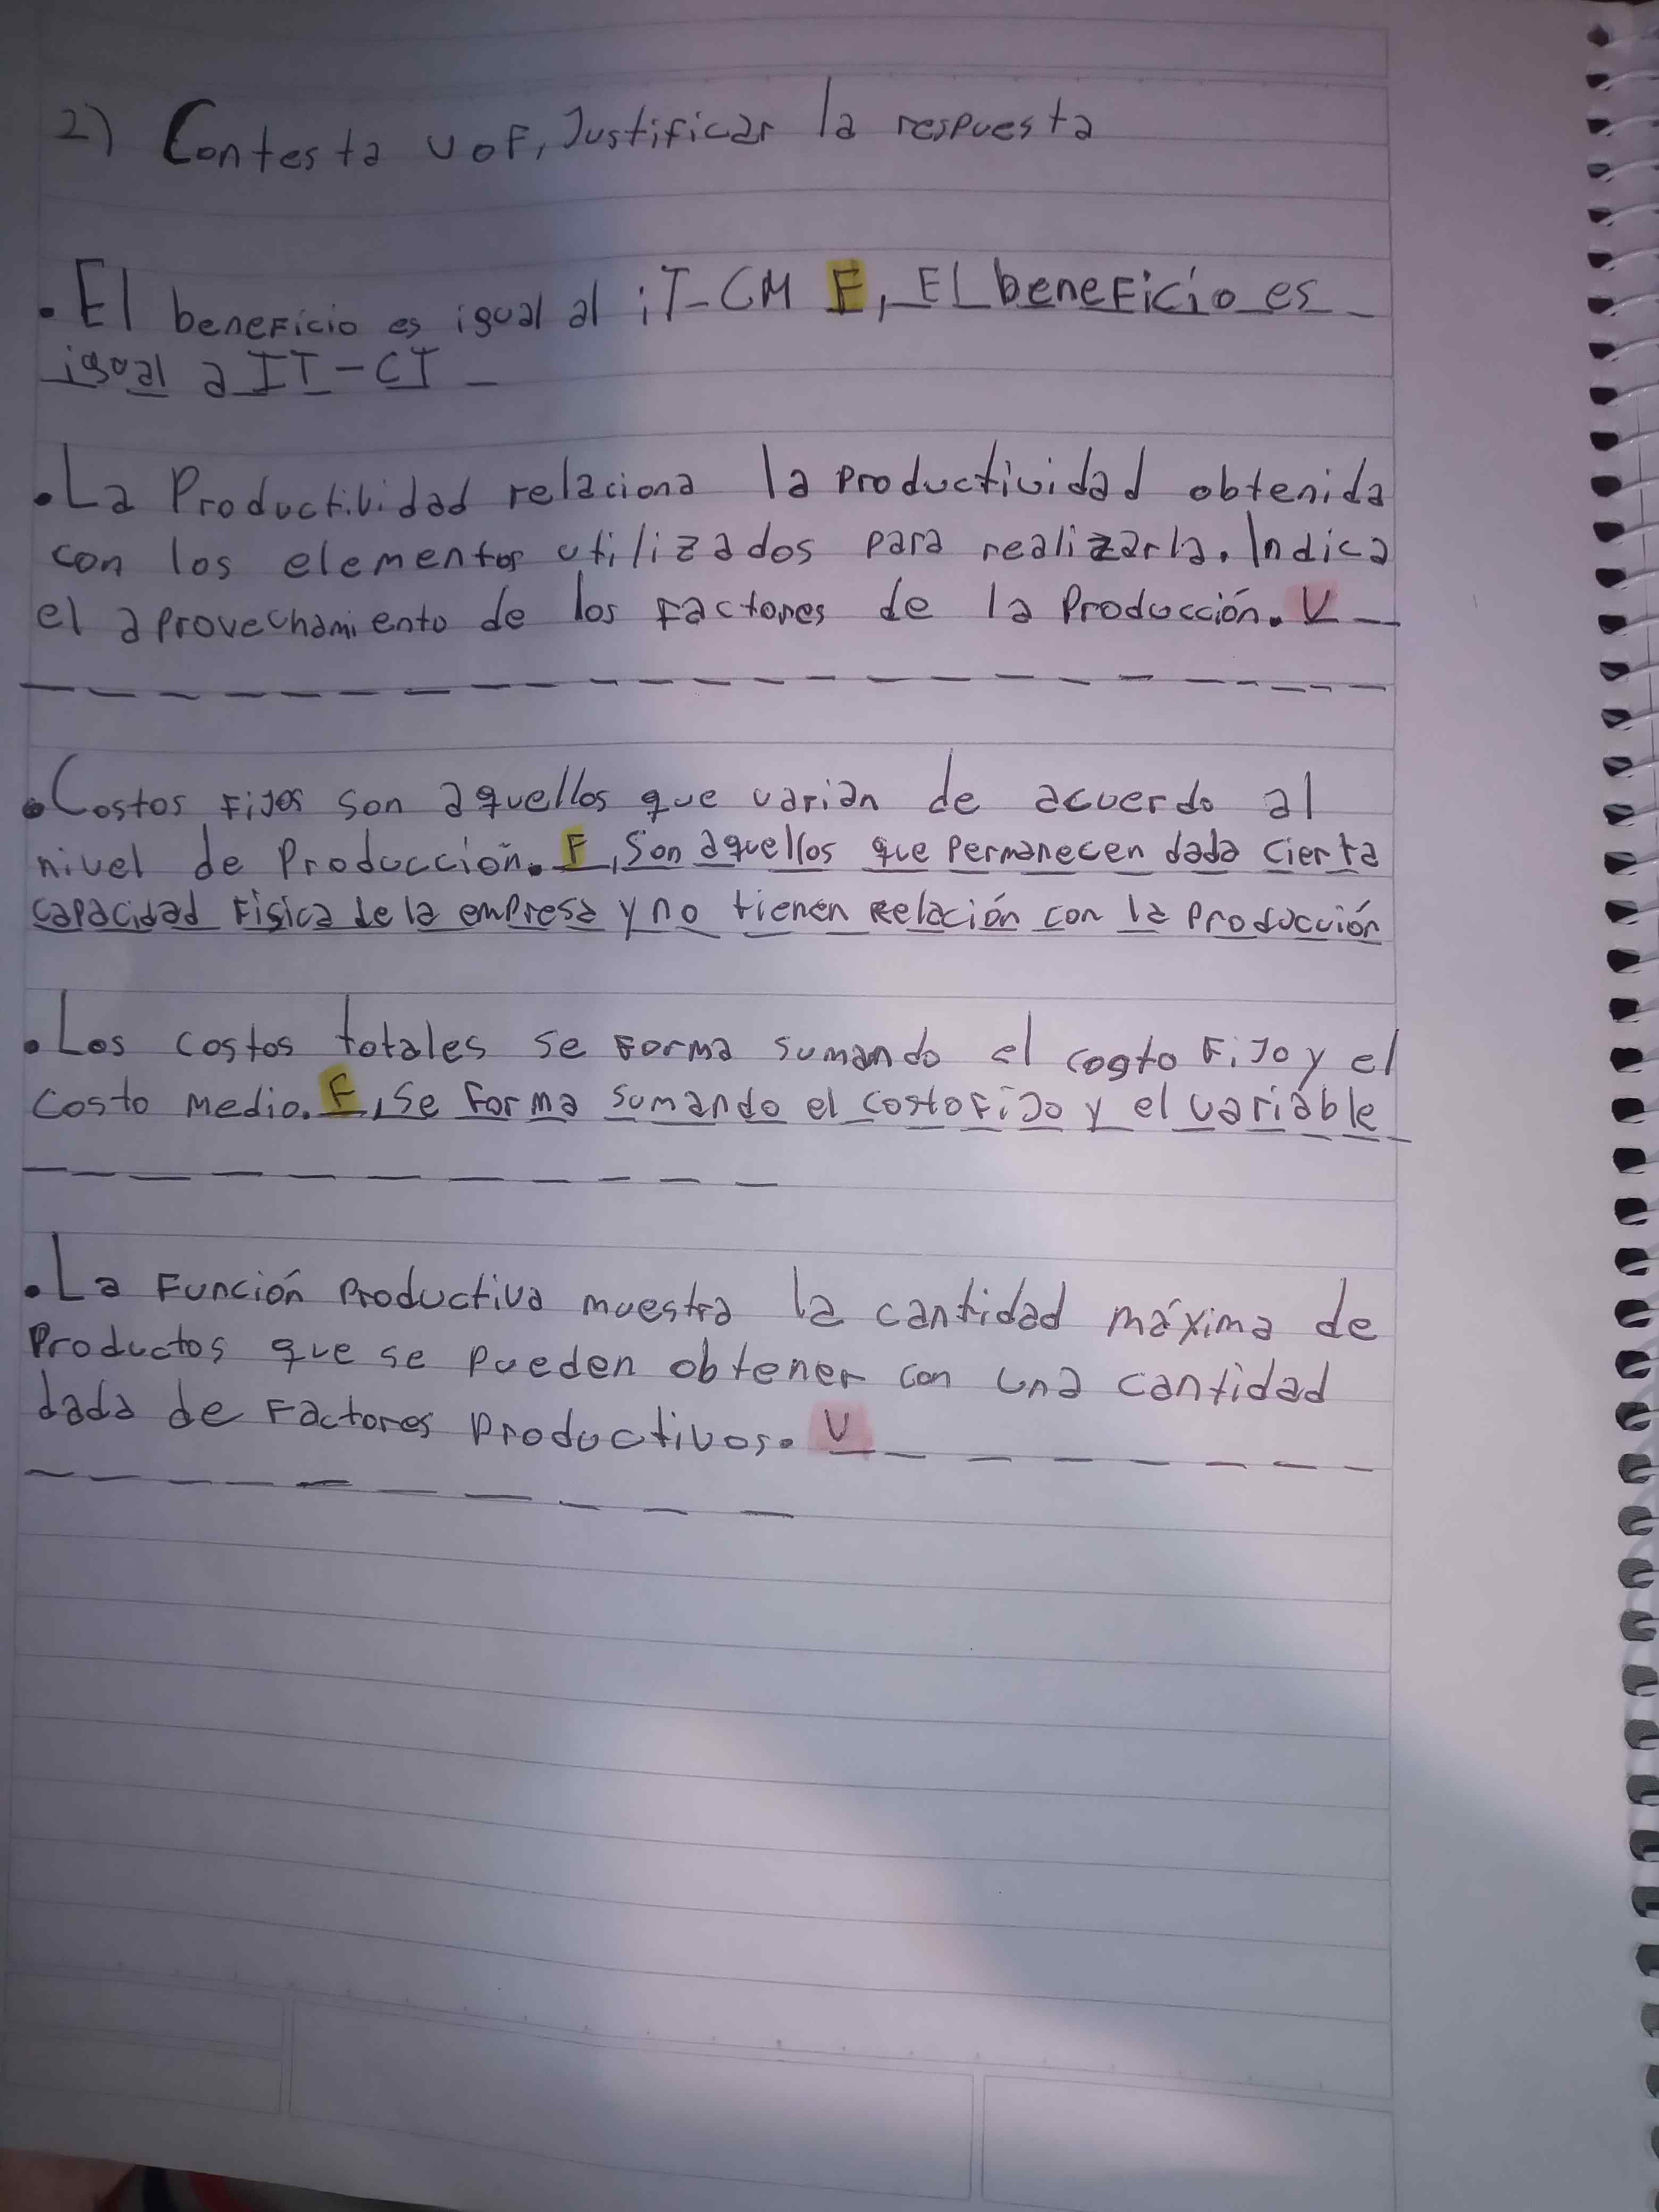 2) Contesta V o F, Justificar la respuesta
• El beneficio es igual al iT-CM F, El beneficio es
igual a IT-CT
• La Productividad relaciona la productividad obtenida
con los elementos utilizados para realizarla. Indica
el aprovechamiento de los factores de la Producción. V
• Costos Fijos son aquellos que varian de acuerdo al
nivel de Producción. F, Son aquellos que permanecen dada cierta
capacidad Física de la empresa y no tienen relación con la producción
• Los costos totales se forma sumando el costo Fijo y el
costo medio. F, Se forma sumando el costo Fijo y el variable
• La Función Productiva muestra la cantidad máxima de
Productos que se pueden obtener con una cantidad
dada de Factores Productivos. V